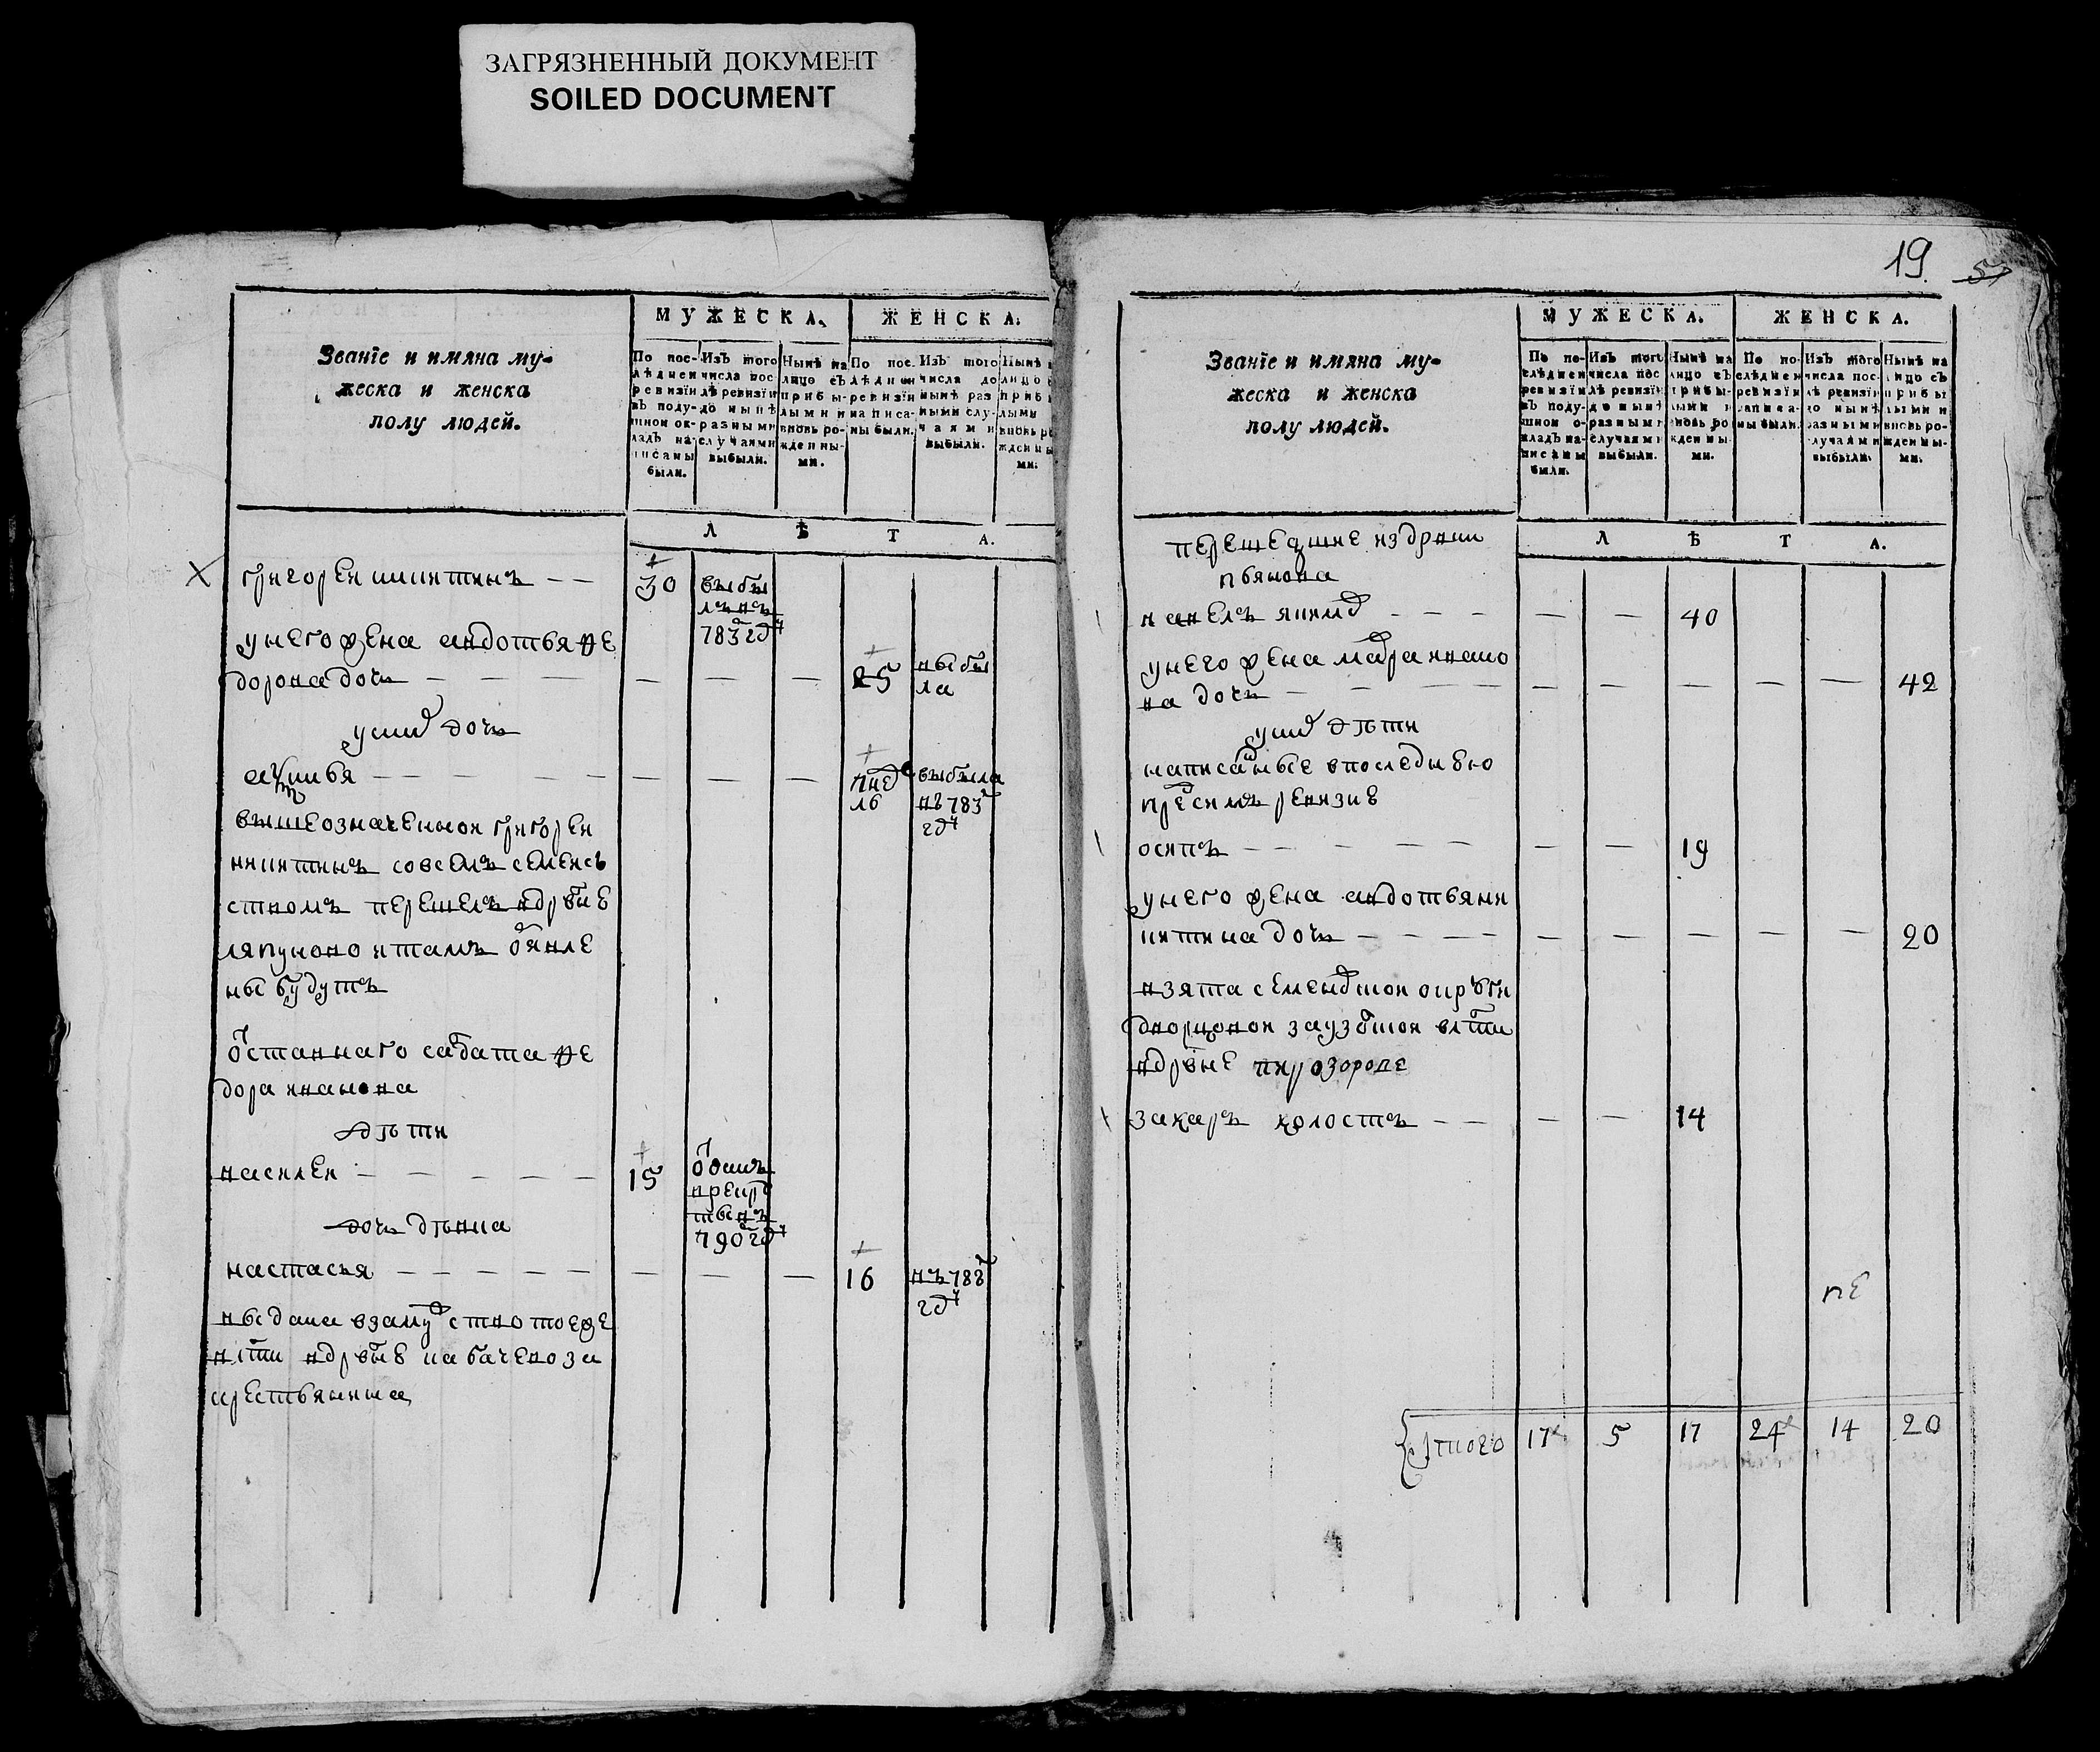 ЗАГРЯЗНЕННЫЙ ДОКУМЕНТ
SOILED DOCUMENT
Званїе и имяна му-
жеска и женска
полу людей.
МУЖЕСКА.
ЖЕНСКА.
По пос-
лѣдней
ревизїи
въ поду-
шной ок-
ладъ на-
писаны
были.
Изъ того
числа пос
лѣ ревизїи
до нынѣ
разными
случаями
выбыли.
Нынѣ на
лицо съ
прибы-
лыми и
вновь ро-
жденны-
ми.
По пос.
лѣдней
ревизїи
написа-
ны были.
Изъ того
числа до
нынѣ раз
ными слу-
чаями
выбыли.
Нынѣ
лицо
приб
лыми
вновь р
жденны
ми.
ЛѢТА.
григореи никитинъ
30
выбы
лъ въ
783 гд
у него жена авдотья фе
дорова дочь
25
выбы
ла
у них дочь
вышеозначеннои григореи
никитинъ со всемъ семеис
ством перешелъ в дрвне
ляпуново и тамъ обявле
ны будутъ
оставнаго салдата фе
дора иванова
дѣти
василеи
15
790 гд
дочь дѣвка
настасья
16
въ 788
гд
выдана в замуство тоеже
влсти в дрвне кабачево за
крестьянина
19
57
Званїе и имяна му-
жеска и женска
полу людей.
МУЖЕСКА.
ЖЕНСКА.
По по-
слѣдней
ревизїи
въ поду-
шной о-
кладъ на-
писаны
были.
Изъ того
числа пос
лѣ ревизїи
до нынѣ
разными
случаями
выбыли.
Нынѣ на
лицо съ
прибы-
лыми и
вновь ро
жденны-
ми.
По по-
слѣдней
ревизїи
написа-
ны были.
Изъ того
числа пос-
лѣ ревизїи
до нынѣ
разными
случаями
выбыли.
Нынѣ на
лицо съ
прибы
лыми и
вновь ро-
жденны-
ми.
ЛѢТА.
перешедшие из дрвни
пьянова
павелъ якимв
40
у него жена марья ивано
ва дочь
42
у них дѣти
написанные в последнею
пред симъ ревизие
осипъ
19
у него жена авдотья ни
китина дочь
20
взята семенвскои окрвги
дворцовои заузолскои влсти
в дрвне
захаръ холостъ
14
итого
17
5
17
24
14
20